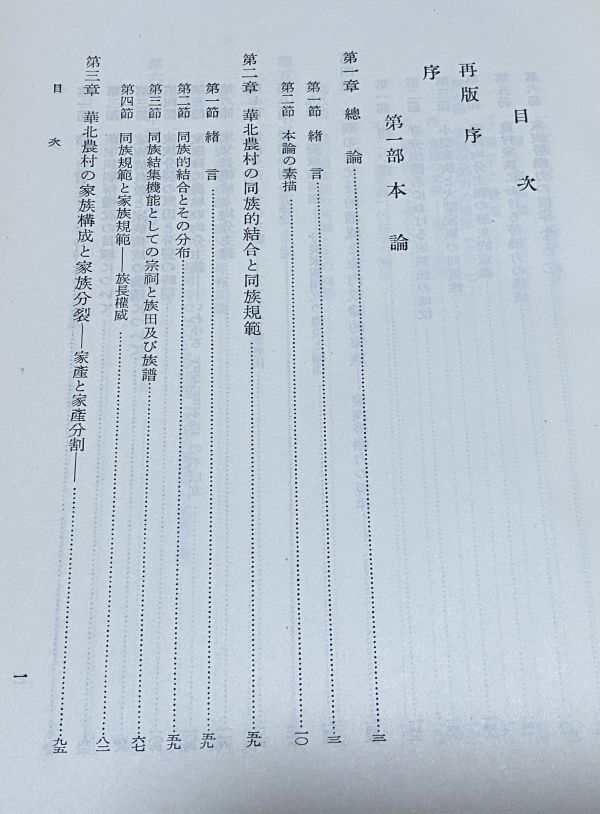 目次
再版序
序
第一部 本論
第一章 總論……三
第一節 緒言……三
第二節 本論の素描……一〇
第二章 華北農村の同族的結合と同族規範……五九
第一節 緒言……五九
第二節 同族的結合とその分布……五九
第三節 同族結集機能としての宗祠と族田及び族譜……六七
第四節 同族規範と家族規範——族長權威……八二
第三章 華北農村の家族構成と家族分裂——家產と家產分割——……九五
目次
一